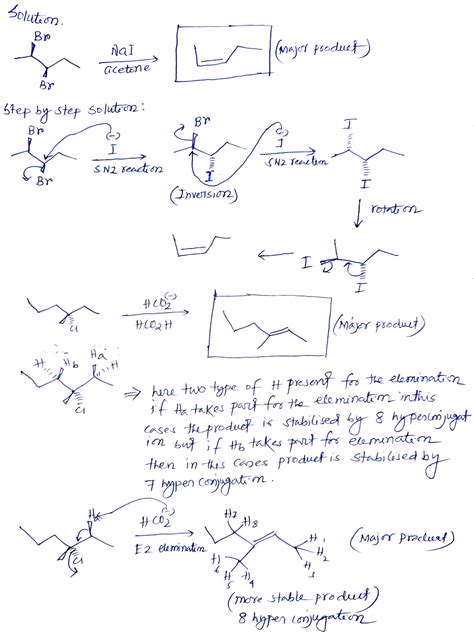 Solution.
Br
NaI
acetone
(Major product)
Br
Step by step solution:
Br
(-)
I
SN2 reaction
Br
Br
I
(Inversion)
(-)
I
SN2 reaction
I
I
rotation
I
I
HCO2(-)
HCO2H
Cl
(Major product)
H Hb Ha H
Cl
⇒ here two type of H present for the elemination
if Ha takes part for the elemination in this
cases the product is stabilised by 8 hyperconjugat
ion but if Hb takes part for elemination
then in this cases product is stabilised by
7 hyper conjugation.
H
Cl
HCO2(-)
E2 elemination
H7
H8
H1
H2
3
H6
H5
H4
(Major product)
(more stable product)
8 hyper conjugation